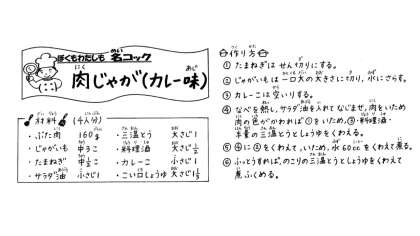 ぼくもわたしも 名コック
肉じゃが(カレー味)
材料 (4人分)
・ぶた肉 160g ・三温とう 大さじ1
・じゃがいも 中3こ ・料理酒 大さじ½
・たまねぎ 中½こ ・カレーこ 小さじ1
・サラダ油 小さじ1 ・こい口しょうゆ 大さじ1⅓
作り方
① たまねぎは せん切りにする。
② じゃがいもは 一口大の大きさに切り、水にさらす。
③ カレーこは 空いりする。
④ なべを熱し、サラダ油を入れて なじませ、肉をいため
肉の色がかわれば①をいため、③・料理酒・
半量の三温とうとしょうゆをくわえる。
⑤ ④に②をくわえて、いため、水60ccをくわえて煮る。
⑥ ふっとうすれば、のこりの三温とうとしょうゆをくわえて
煮ふくめる。